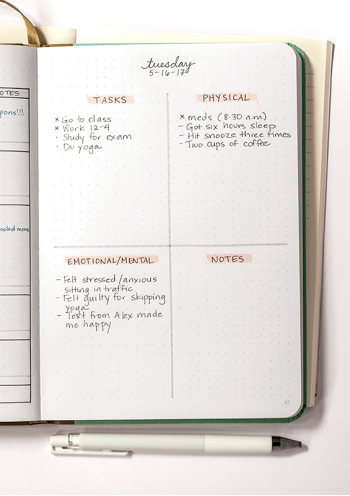 OTES
pons!!!
ooled more
tuesday
5-16-17
TASKS
× Go to class
× Work 12-4
· Study for exam
· Do yoga
PHYSICAL
× meds (8:30 a.m)
- Got six hours sleep
- Hit snooze three times
- Two cups of coffee
EMOTIONAL/MENTAL
- Felt stressed/anxious
sitting in traffic
- Felt guilty for skipping
yoga
- Text from Alex made
me happy
NOTES